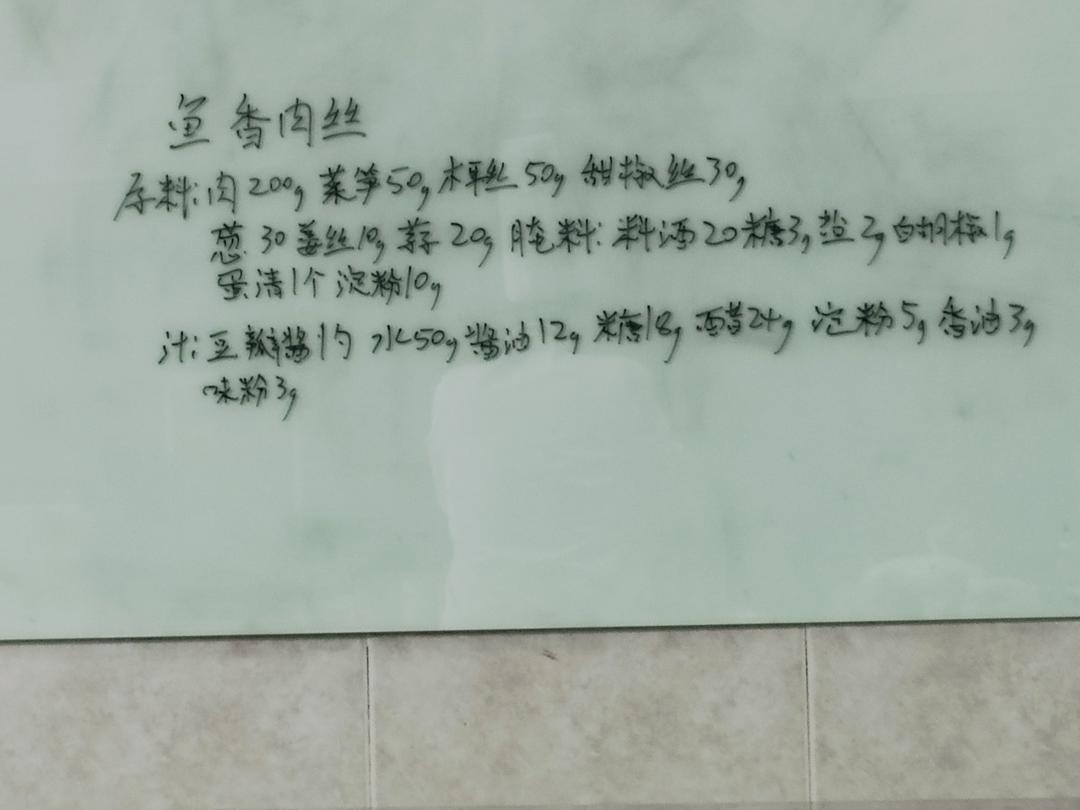 鱼香肉丝
原料:肉200g 莱笋50g 木耳丝50g 甜椒丝30g
葱30 姜丝10g 蒜20g 腌料:料酒20糖3g盐2g白胡椒1g
蛋清1个 淀粉10g
汁:豆瓣酱1勺 水50g酱油12g 糖18g 醋24g 淀粉5g香油3g
味粉3g